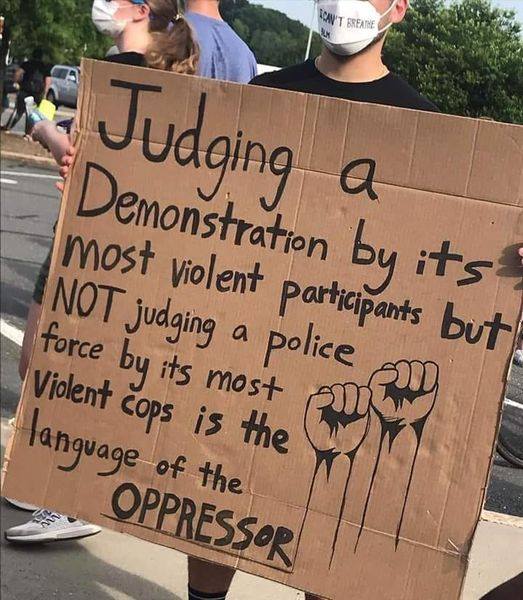 I CAN'T BREATHE
BLM
Judging a
Demonstration by its
most violent participants but
NOT judging a police
force by its most
Violent cops is the
language of the
OPPRESSOR